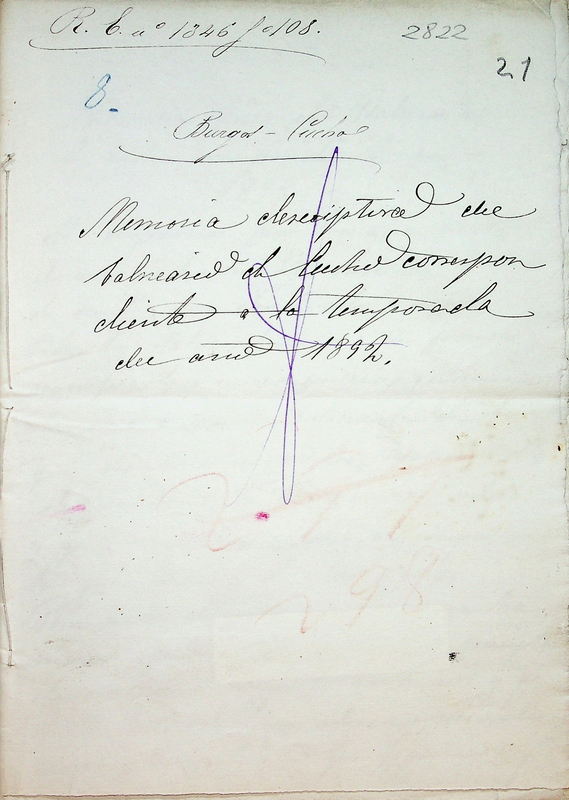 R. E. nº 1346 fº 108.
2822
21
8.
Burgos - Cucho
Memoria descriptiva del
balneario de Cucho correspon
diente a la temporada
del año 1892.
298